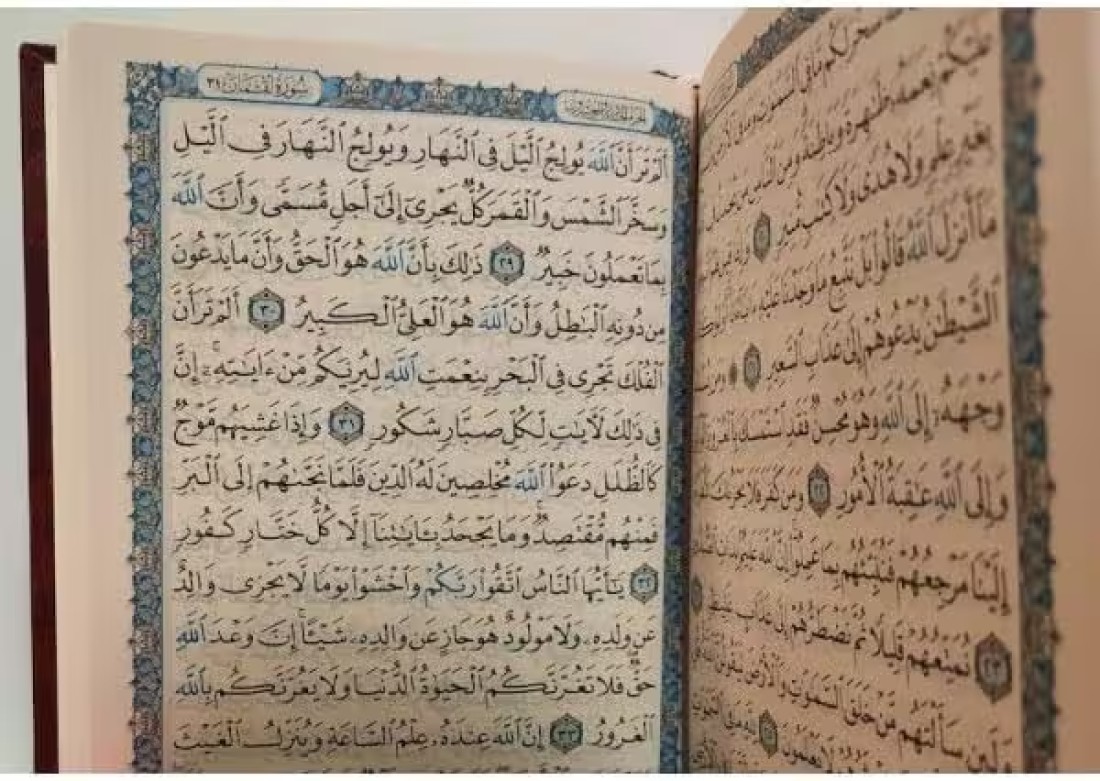 سَخَّرَ لَكُم مَّا فِى ٱلسَّمَٰوَٰتِ وَمَا فِى
عَلَيْكُمْ نِعَمَهُۥ ظَٰهِرَةً وَبَاطِنَةً وَمِنَ ٱلنَّاسِ مَن يُجَٰدِلُ فِى
بِغَيْرِ عِلْمٍ وَلَا هُدًى وَلَا كِتَٰبٍ مُّنِيرٍ
مَآ أَنزَلَ ٱللَّهُ قَالُوا۟ بَلْ نَتَّبِعُ مَا وَجَدْنَا عَلَيْهِ
ٱلشَّيْطَٰنُ يَدْعُوهُمْ إِلَىٰ عَذَابِ ٱلسَّعِيرِ
وَجْهَهُۥٓ إِلَى ٱللَّهِ وَهُوَ مُحْسِنٌ فَقَدِ ٱسْتَمْسَكَ
وَإِلَى ٱللَّهِ عَٰقِبَةُ ٱلْأُمُورِ ٢٢ وَمَن كَفَرَ فَلَا
إِلَيْنَا مَرْجِعُهُمْ فَنُنَبِّئُهُم بِمَا عَمِلُوٓا۟ إِنَّ ٱللَّهَ عَلِيمٌۢ
٢٣ نُمَتِّعُهُمْ قَلِيلًا ثُمَّ نَضْطَرُّهُمْ إِلَىٰ عَذَابٍ غَلِيظٍ
وَلَئِن سَأَلْتَهُم مَّنْ خَلَقَ ٱلسَّمَٰوَٰتِ وَٱلْأَرْضَ لَيَقُولُنَّ
سُورَةُ لُقْمَان ٣١
أَلَمْ تَرَ أَنَّ ٱللَّهَ يُولِجُ ٱلَّيْلَ فِى ٱلنَّهَارِ وَيُولِجُ ٱلنَّهَارَ فِى ٱلَّيْلِ
وَسَخَّرَ ٱلشَّمْسَ وَٱلْقَمَرَ كُلٌّ يَجْرِىٓ إِلَىٰٓ أَجَلٍ مُّسَمًّى وَأَنَّ ٱللَّهَ
بِمَا تَعْمَلُونَ خَبِيرٌ ٢٩ ذَٰلِكَ بِأَنَّ ٱللَّهَ هُوَ ٱلْحَقُّ وَأَنَّ مَا يَدْعُونَ
مِن دُونِهِ ٱلْبَٰطِلُ وَأَنَّ ٱللَّهَ هُوَ ٱلْعَلِىُّ ٱلْكَبِيرُ ٣٠ أَلَمْ تَرَ أَنَّ
ٱلْفُلْكَ تَجْرِى فِى ٱلْبَحْرِ بِنِعْمَتِ ٱللَّهِ لِيُرِيَكُم مِّنْ ءَايَٰتِهِۦٓ ۚ إِنَّ
فِى ذَٰلِكَ لَءَايَٰتٍ لِّكُلِّ صَبَّارٍ شَكُورٍ ٣١ وَإِذَا غَشِيَهُم مَّوْجٌ
كَٱلظُّلَلِ دَعَوُا۟ ٱللَّهَ مُخْلِصِينَ لَهُ ٱلدِّينَ فَلَمَّا نَجَّىٰهُمْ إِلَى ٱلْبَرِّ
فَمِنْهُم مُّقْتَصِدٌ ۚ وَمَا يَجْحَدُ بِـَٔايَٰتِنَآ إِلَّا كُلُّ خَتَّارٍ كَفُورٍ
٣٢ يَٰٓأَيُّهَا ٱلنَّاسُ ٱتَّقُوا۟ رَبَّكُمْ وَٱخْشَوْا۟ يَوْمًا لَّا يَجْزِى وَالِدٌ
عَن وَلَدِهِۦ وَلَا مَوْلُودٌ هُوَ جَازٍ عَن وَالِدِهِۦ شَيْـًٔا ۚ إِنَّ وَعْدَ ٱللَّهِ
حَقٌّ ۖ فَلَا تَغُرَّنَّكُمُ ٱلْحَيَوٰةُ ٱلدُّنْيَا وَلَا يَغُرَّنَّكُم بِٱللَّهِ
ٱلْغَرُورُ ٣٣ إِنَّ ٱللَّهَ عِندَهُۥ عِلْمُ ٱلسَّاعَةِ وَيُنَزِّلُ ٱلْغَيْثَ